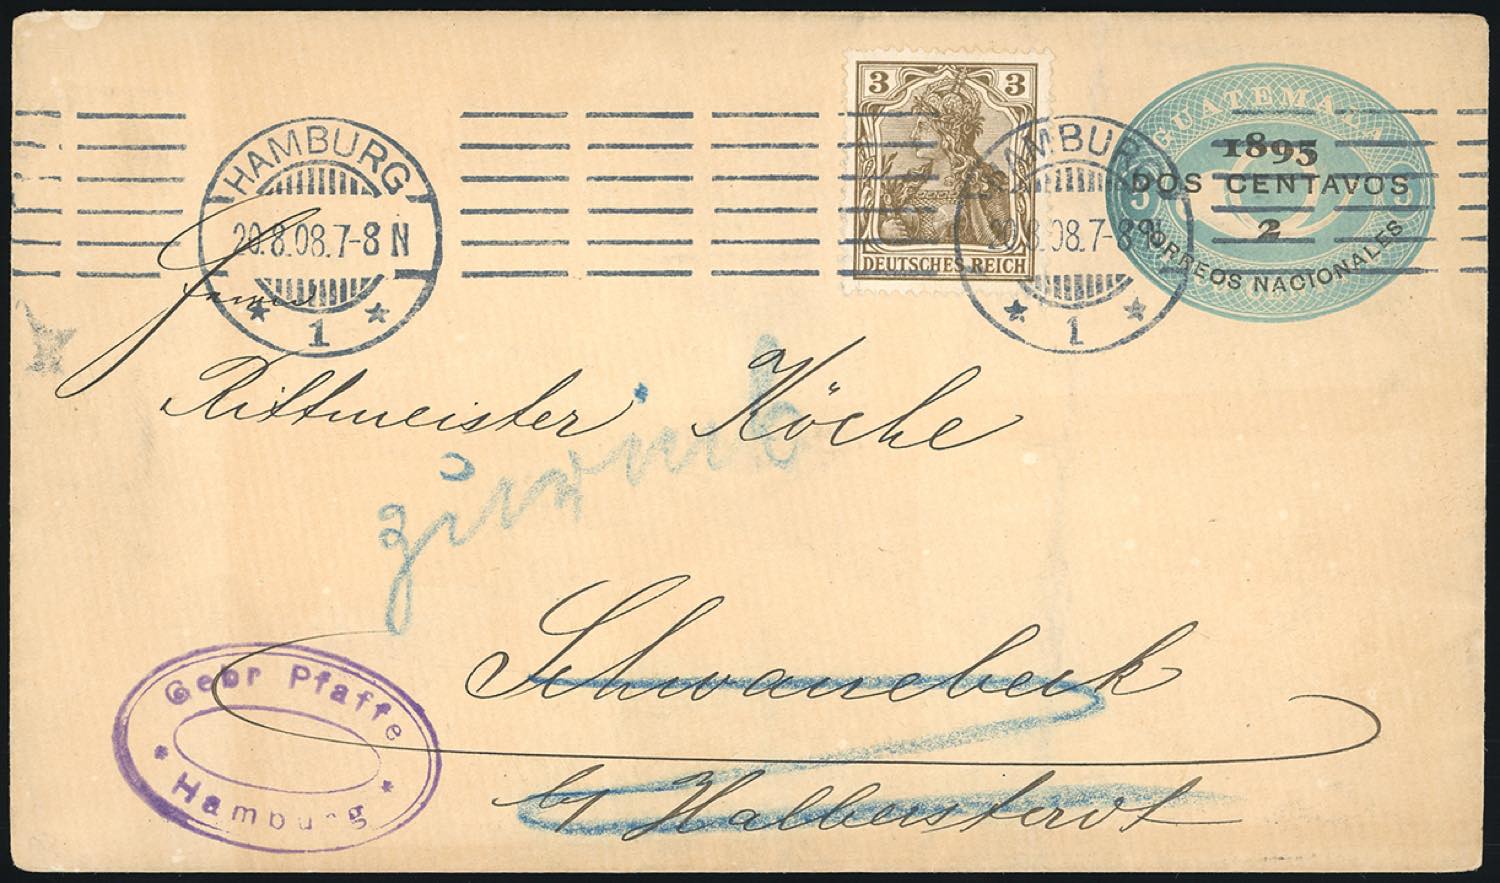 HAMBURG
20.8.08.7-8N
* 1 *
3 3
DEUTSCHES REICH
HAMBURG
20.8.08.7-8N
* 1 *
GUATEMALA
1895
5 DOS CENTAVOS 5
2
CORREOS NACIONALES
Herrn
Rittmeister Köche
zurück
Schwanebeck
b/ Halberstadt
Gebr Pfaffe
* Hamburg *